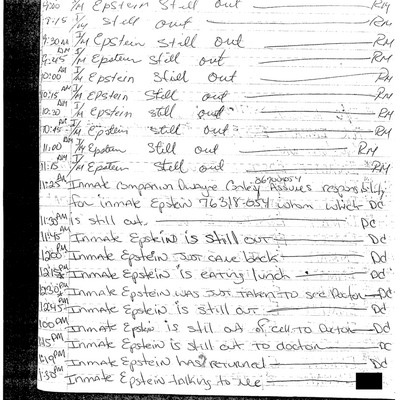 9:00 I/M Epstein Still out RM
9:15 I/M Still out RM
9:30 AM I/M Epstein Still out RM
9:45 AM I/M Epstein Still out RM
10:00 AM I/M Epstein Still out RM
10:15 AM I/M Epstein Still out RM
10:30 AM I/M Epstein still out RM
10:45 AM I/M Epstein Still out RM
11:00 AM I/M Epstein Still out RM
11:15 AM I/M Epstein Still out RM
11:25 Inmate Companion Assumes responsibility
for inmate Epstein 76318-054 whom which DC
11:30 AM is still out. DC
11:45 AM Inmate Epstein is still out DC
12:00 PM Inmate Epstein Just came back DC
12:15 PM Inmate Epstein is eating lunch DC
12:30 PM Inmate Epstein was just taken to see Doctor DC
12:45 PM Inmate Epstein is still out DC
1:00 PM Inmate Epstein is still out of cell to Doctor DC
1:15 PM Inmate Epstein is still out to doctor DC
1:19 PM Inmate Epstein has returned DC
1:30 PM Inmate Epstein talking to me